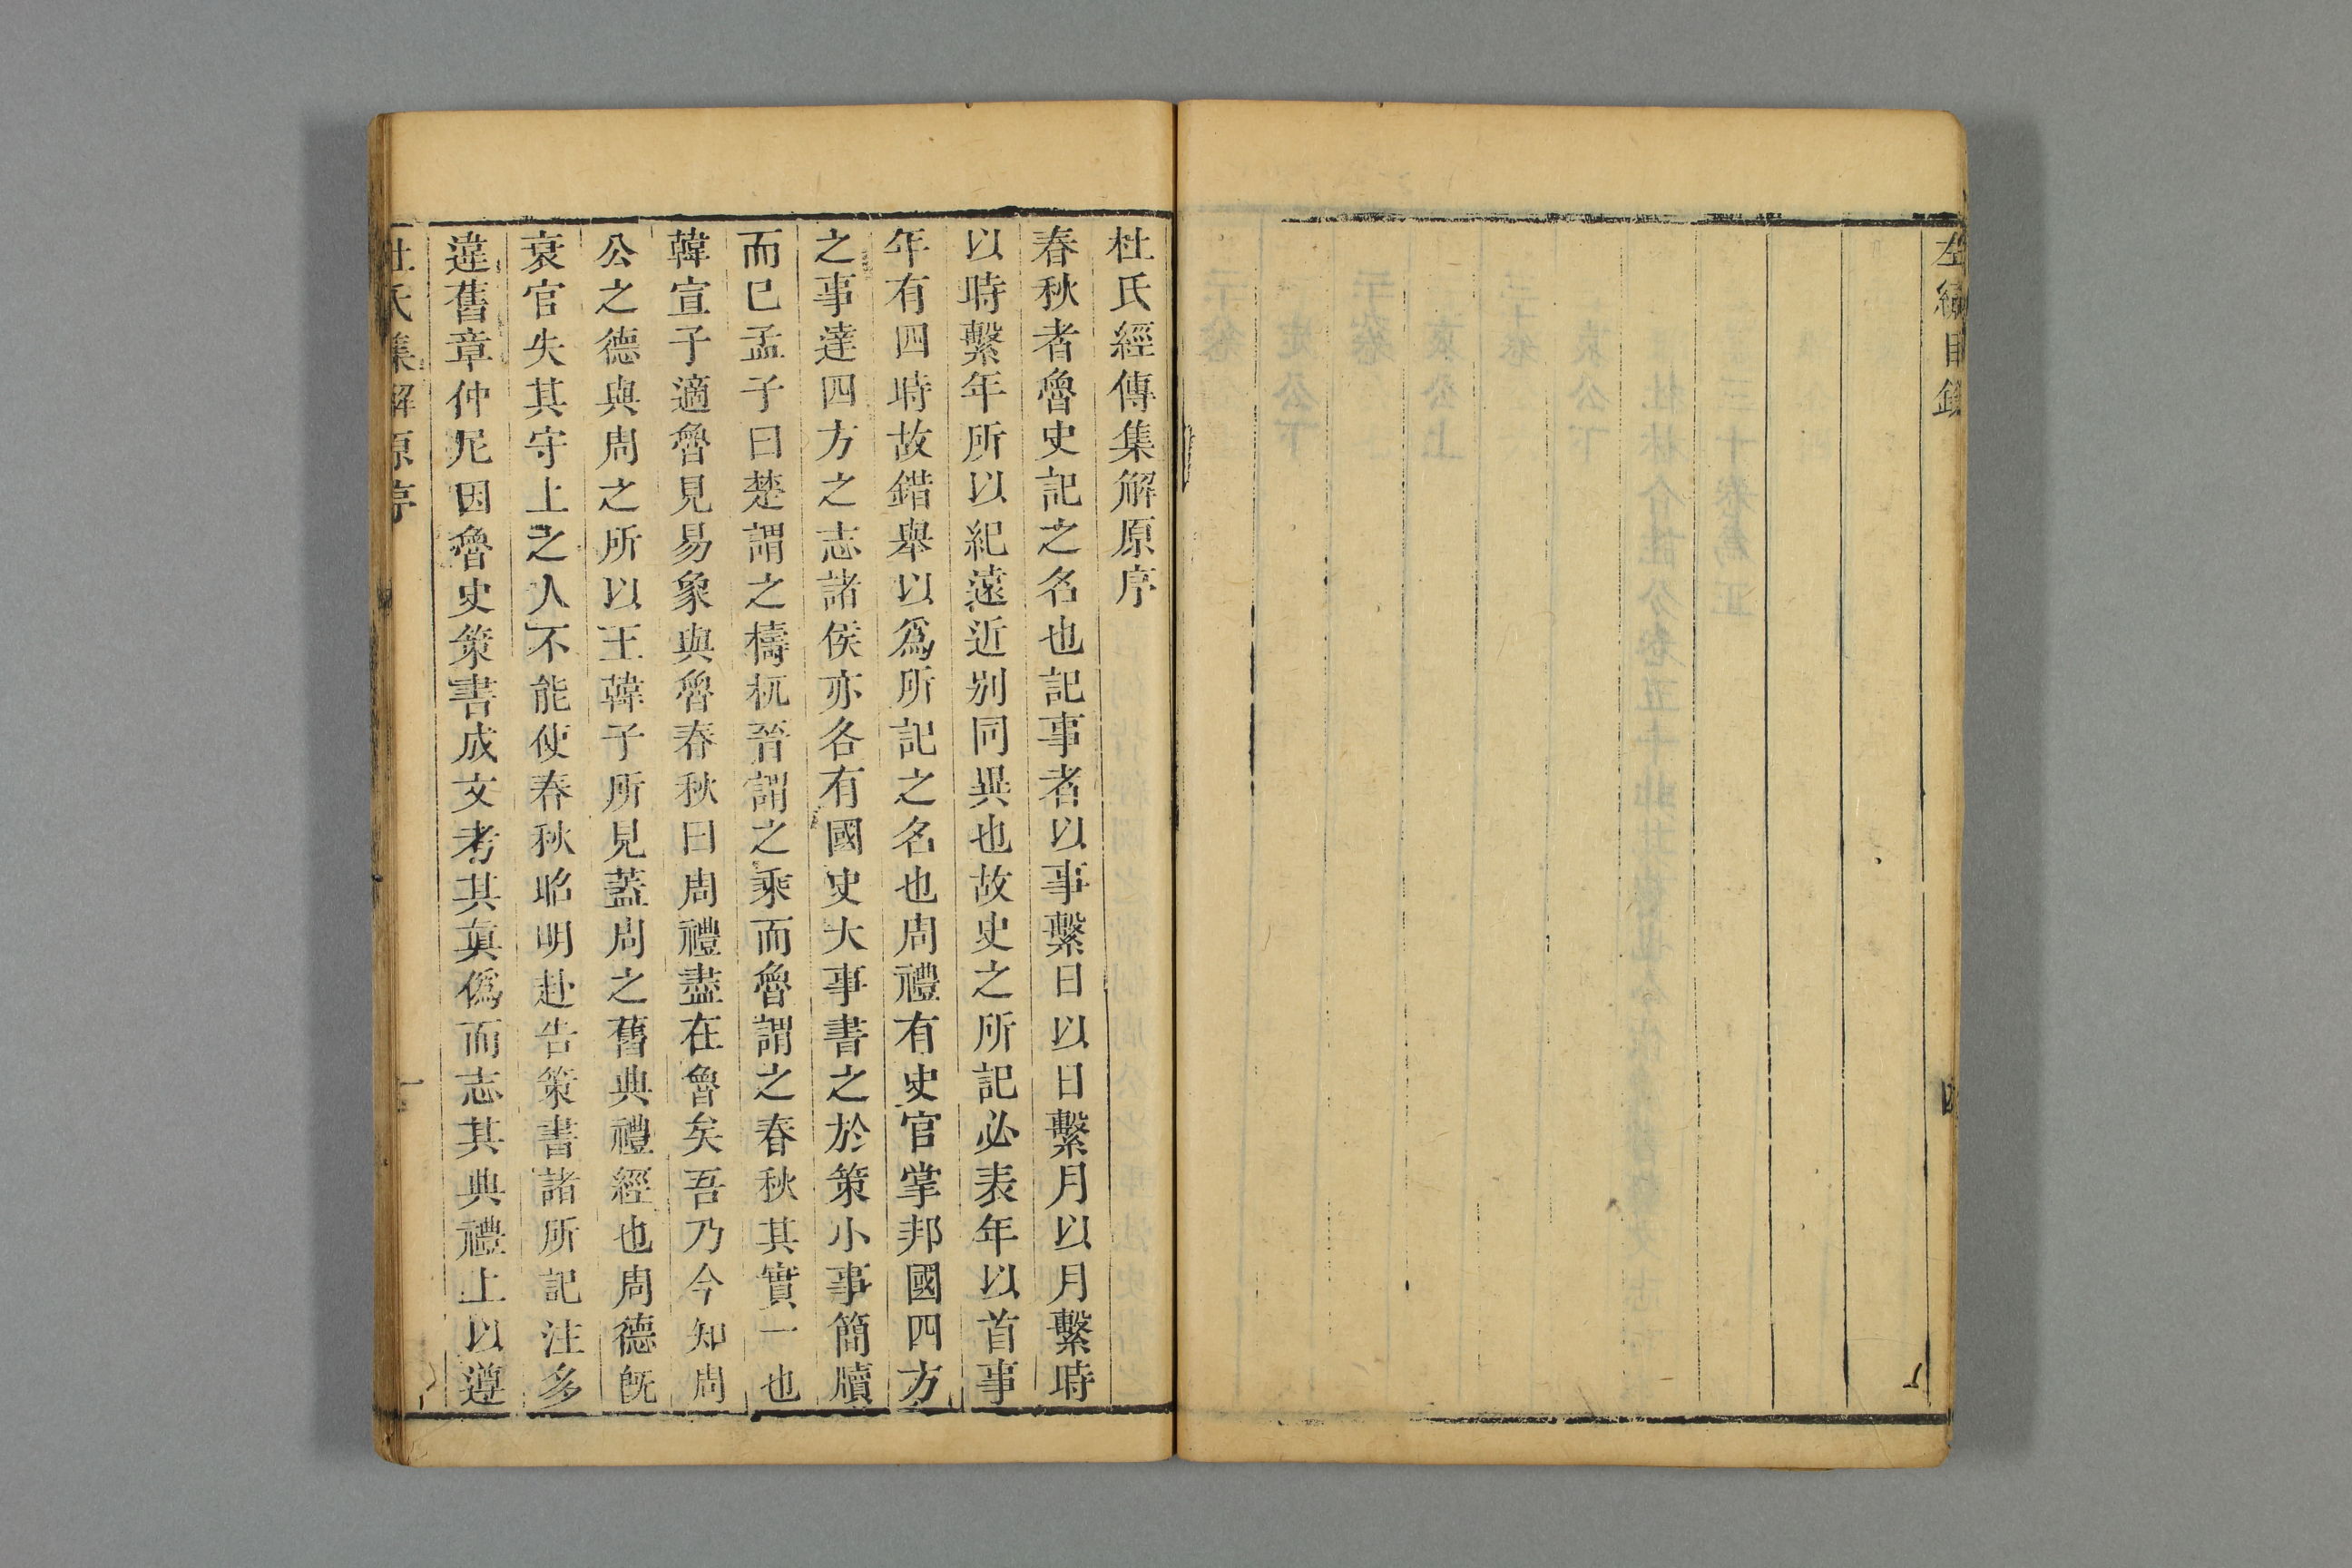 左繡目錄
四
杜氏經傳集解原序
春秋者魯史記之名也記事者以事繫日以日繫月以月繫時
以時繫年所以紀遠近別同異也故史之所記必表年以首事
年有四時故錯舉以爲所記之名也周禮有史官掌邦國四方
之事達四方之志諸侯亦各有國史大事書之於策小事簡牘
而已孟子曰楚謂之檮杌晉謂之乘而魯謂之春秋其實一也
韓宣子適魯見易象與魯春秋曰周禮盡在魯矣吾乃今知周
公之德與周之所以王韓子所見蓋周之舊典禮經也周德旣
衰官失其守上之人不能使春秋昭明赴告策書諸所記注多
違舊章仲尼因魯史策書成文考其眞僞而志其典禮上以遵
杜氏集解原序
一